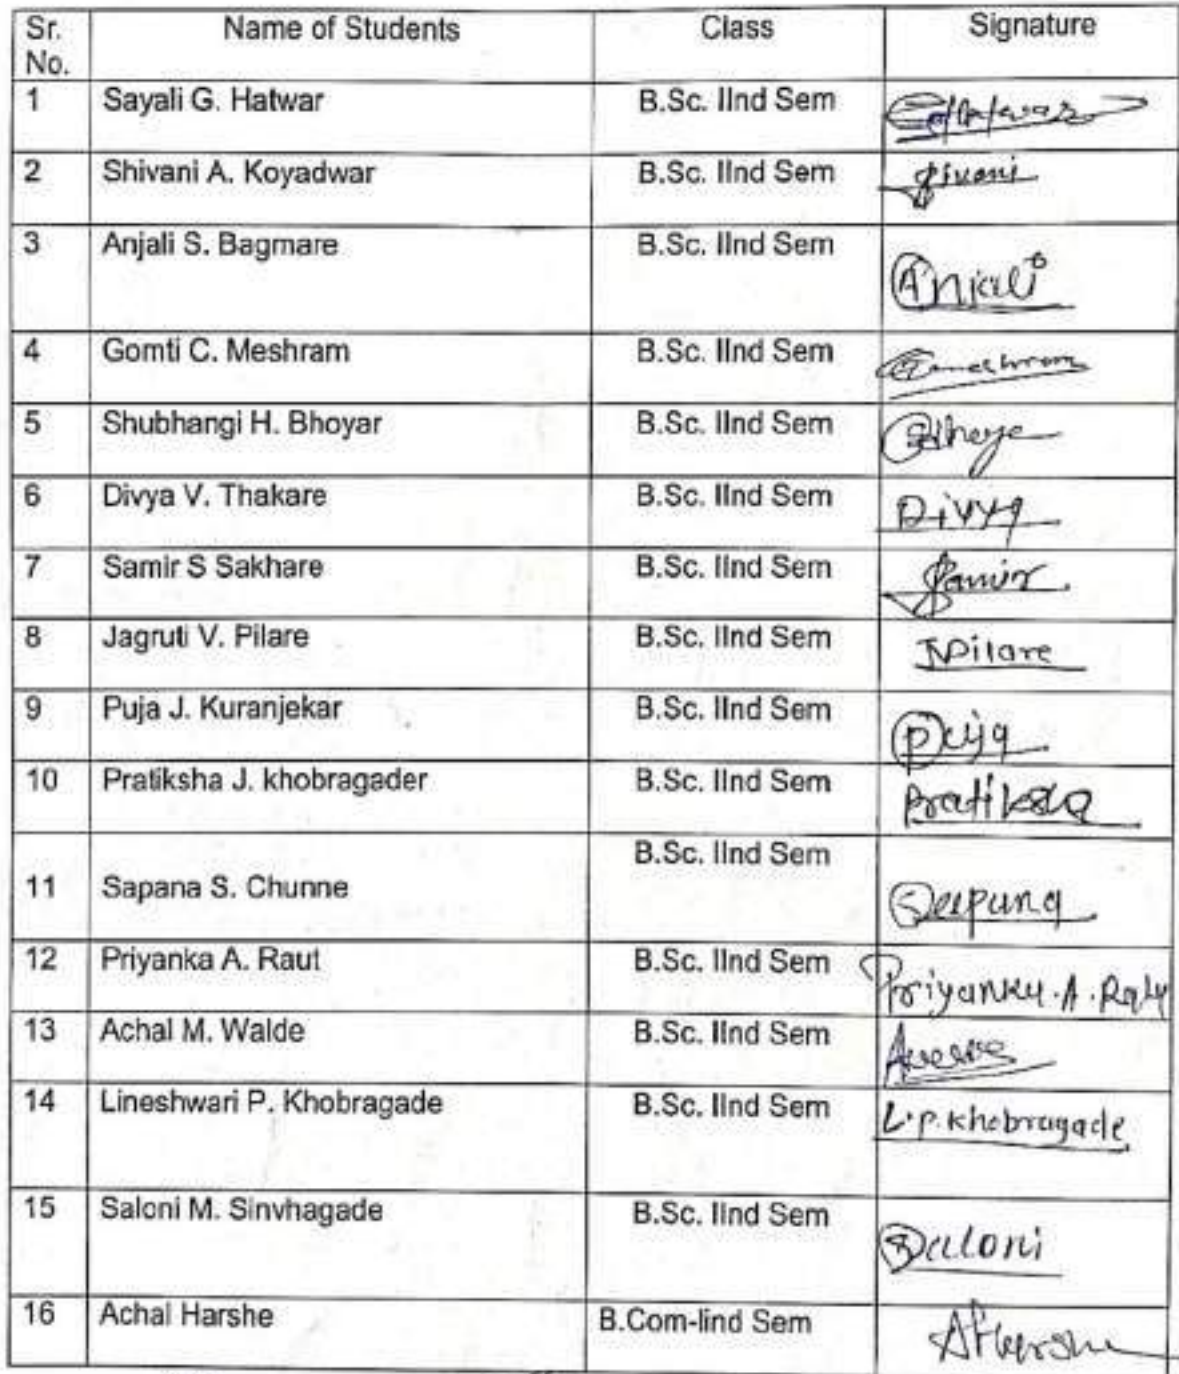 Sr. No. Name of Students Class Signature
1 Sayali G. Hatwar B.Sc. IInd Sem
2 Shivani A. Koyadwar B.Sc. IInd Sem Shivani
3 Anjali S. Bagmare B.Sc. IInd Sem Anjali
4 Gomti C. Meshram B.Sc. IInd Sem
5 Shubhangi H. Bhoyar B.Sc. IInd Sem
6 Divya V. Thakare B.Sc. IInd Sem Divya
7 Samir S Sakhare B.Sc. IInd Sem Samir
8 Jagruti V. Pilare B.Sc. IInd Sem JPilare
9 Puja J. Kuranjekar B.Sc. IInd Sem Puja
10 Pratiksha J. khobragader B.Sc. IInd Sem Pratiksha
11 Sapana S. Chunne B.Sc. IInd Sem
12 Priyanka A. Raut B.Sc. IInd Sem Priyanka.A.Raut
13 Achal M. Walde B.Sc. IInd Sem
14 Lineshwari P. Khobragade B.Sc. IInd Sem L.P.Khobragade
15 Saloni M. Sinvhagade B.Sc. IInd Sem Saloni
16 Achal Harshe B.Com-Iind Sem AHarshe